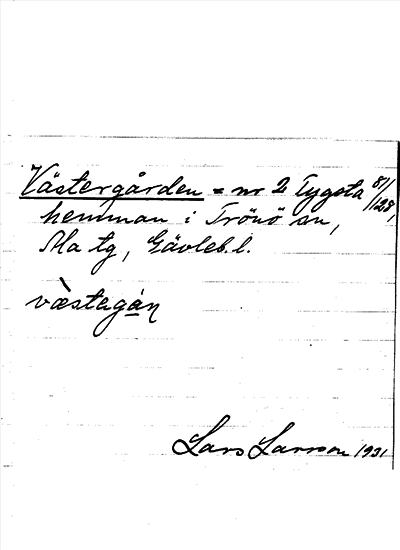 Västergården = nr 2 Tygsta 81/128,
hemman i Trönö sn,
Ala tg, Gävleb. l.
væ̀stagán
Lars Larsson 1931